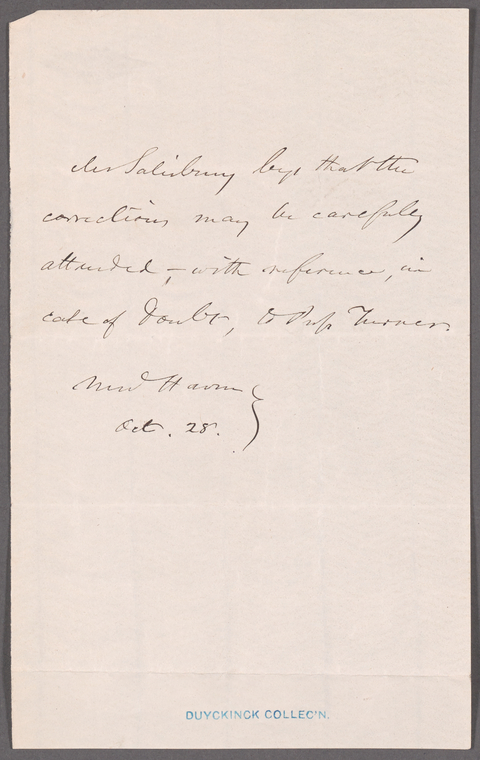 Mr Salisbury begs that the
corrections may be carefully
attended, – with reference, in
case of doubt, to Prof Turner.
New Haven
Oct. 28.
DUYCKINCK COLLEC'N.